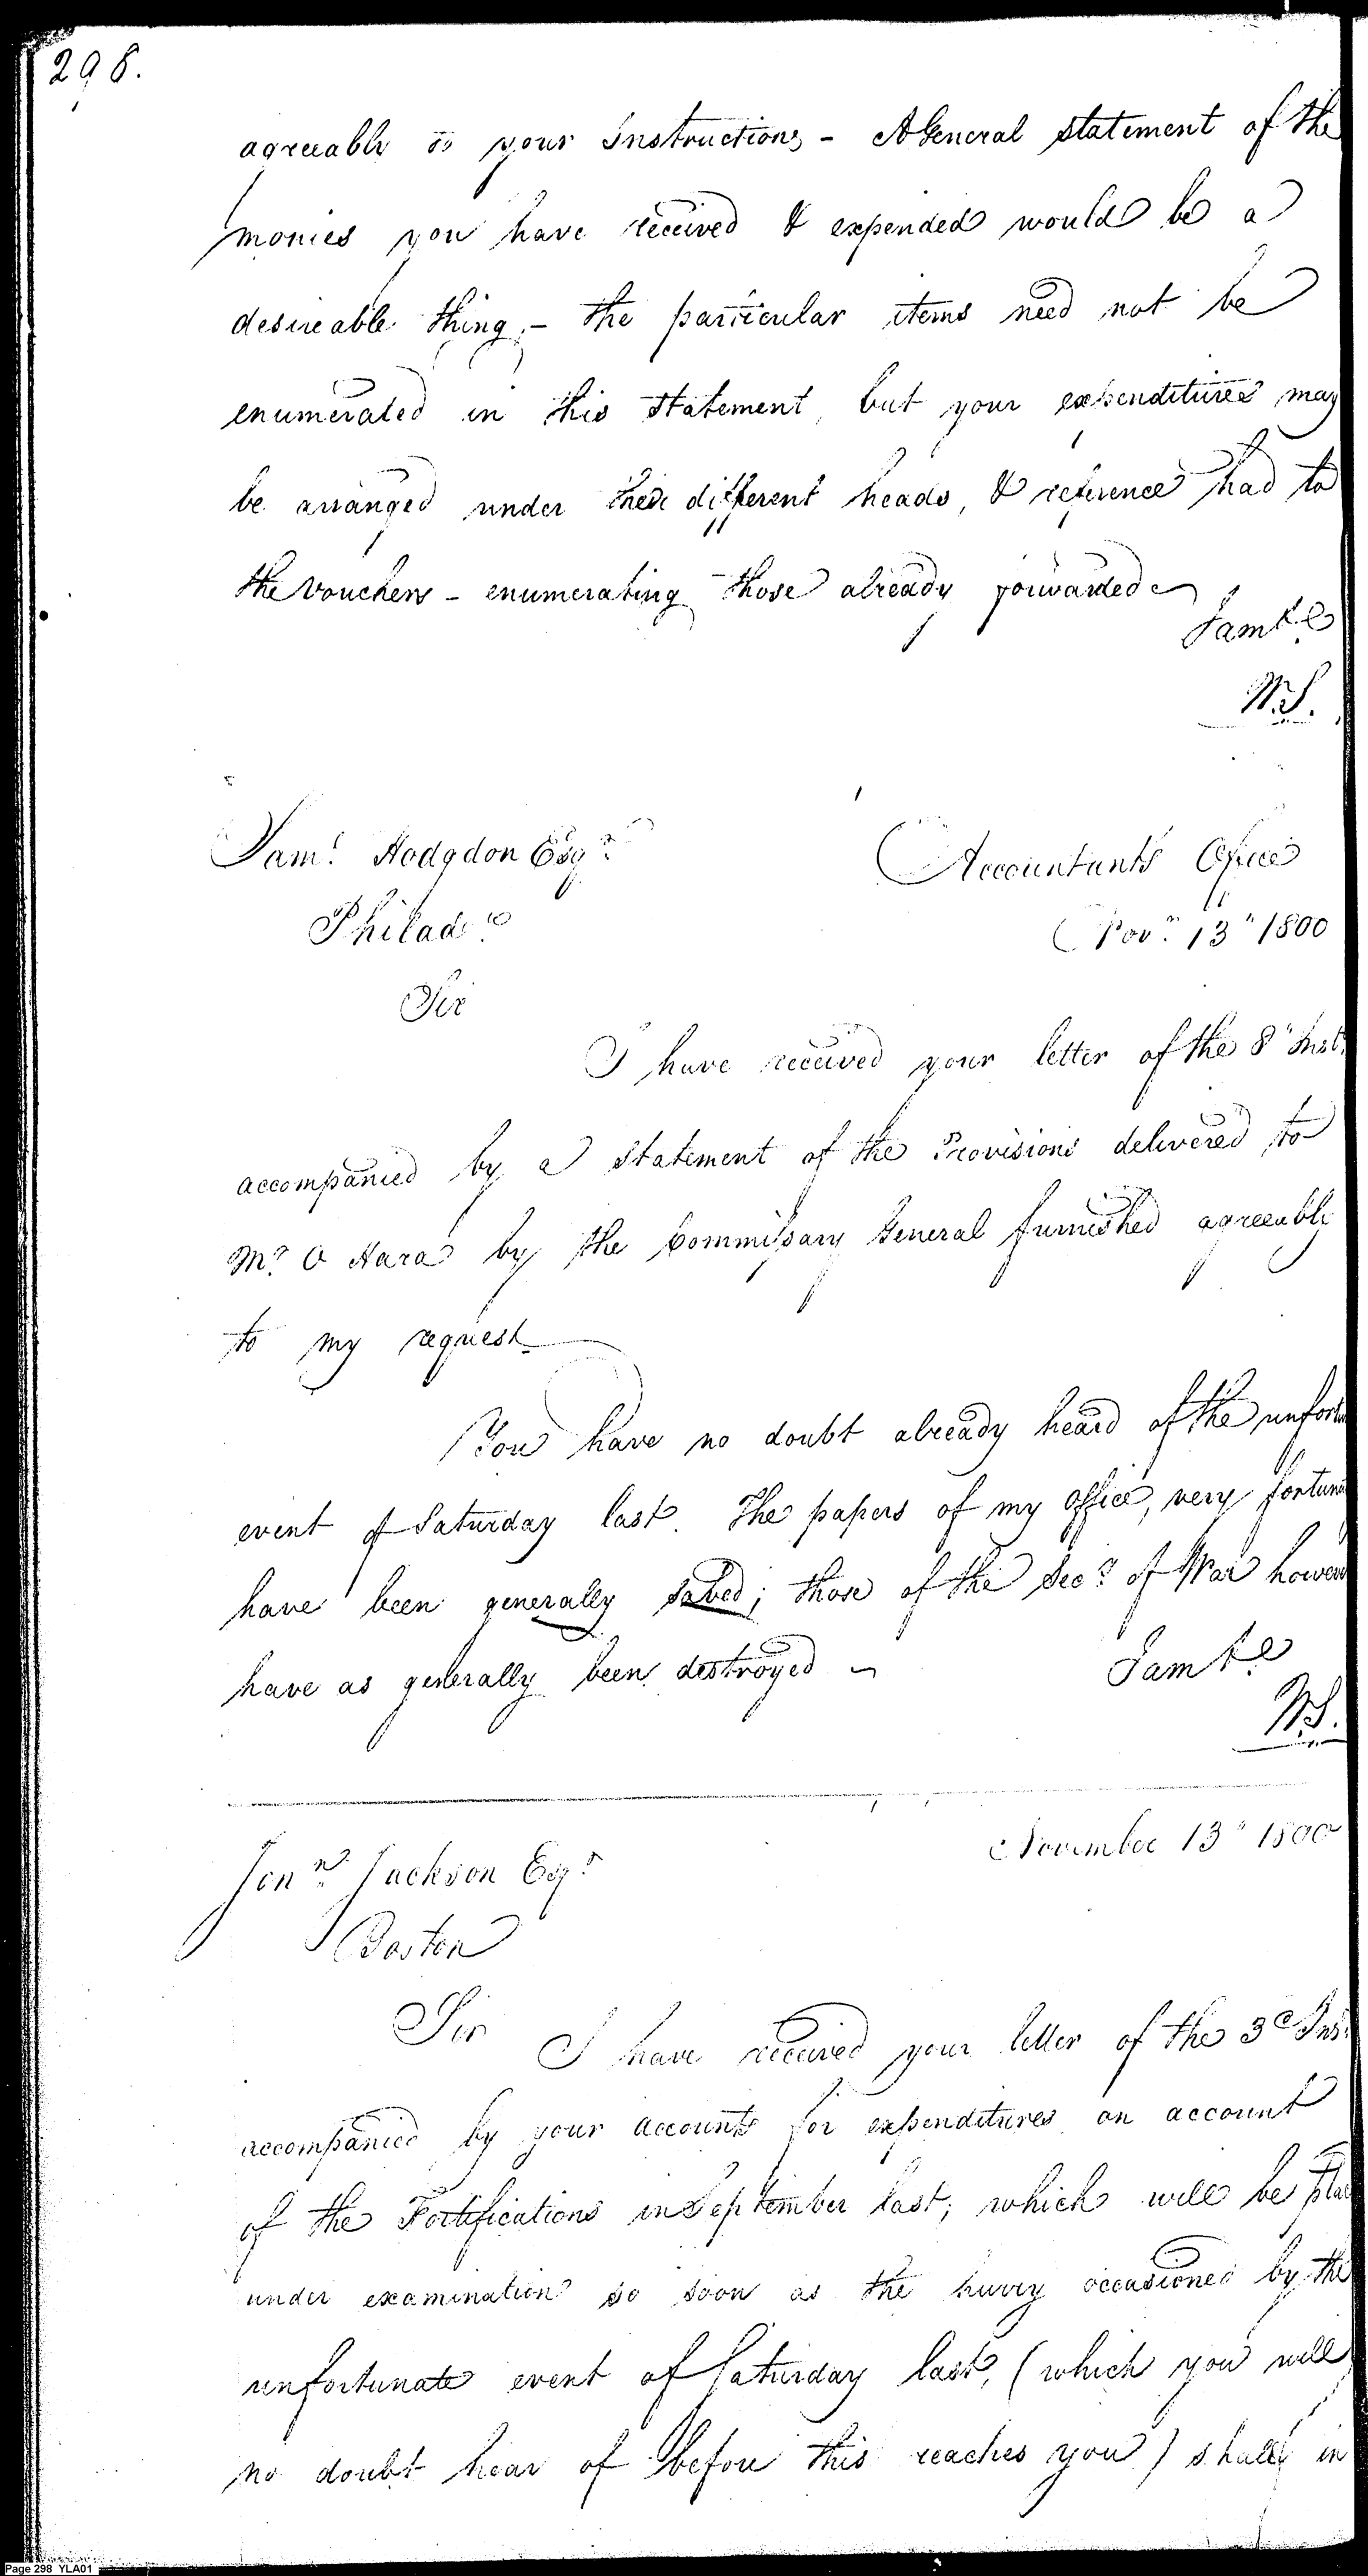 298.
agreeable to your Instructions - A General statement of the
monies you have received & expended would be a
desireable thing, - the particular items need not be
enumerated in this statement, but your expenditures may
be arranged under their different heads, & reference had to
the vouchers - enumerating those already forwarded
I am &c
W.S.
Sam.l Hodgdon Esq.r
Philad.a
Accountant's Office
Nov.r 13th 1800
Sir
I have received your letter of the 8th Inst.
accompanied by a statement of the Provisions delivered to
Mr. O Hara by the Commissary General furnished agreeable
to my request
You have no doubt already heard of the unfortu
event of Saturday last. The papers of my office, very fortun
have been generally saved; those of the Sec.y of War howev
have as generally been destroyed
I am &c
W.S.
November 13th 1800
Jon.n Jackson Esq.r
Boston
Sir
I have received your letter of the 3d Ins
accompanied by your accounts for expenditures on account
of the Fortifications in September last; which will be pla
under examination so soon as the hurry occasioned by the
unfortunate event of Saturday last, (which you will
no doubt hear of before this reaches you) shall in
Page 298 YLA01